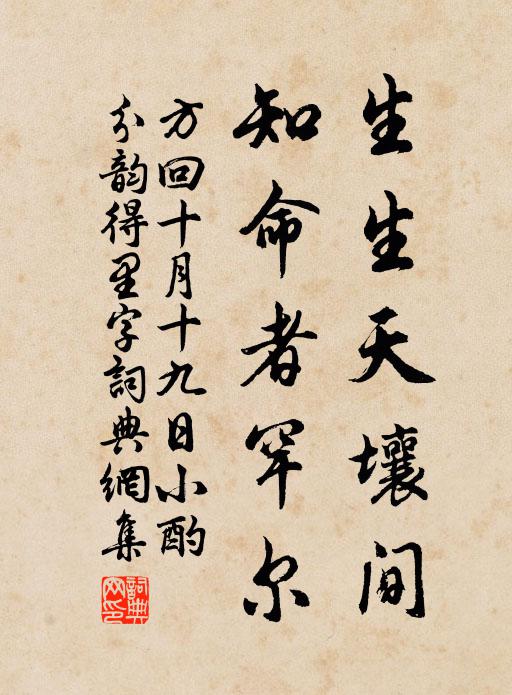 生生天壤间
知命者罕尔
方回十月十九日小酌
分韵得星字詞典網集
詞典網印